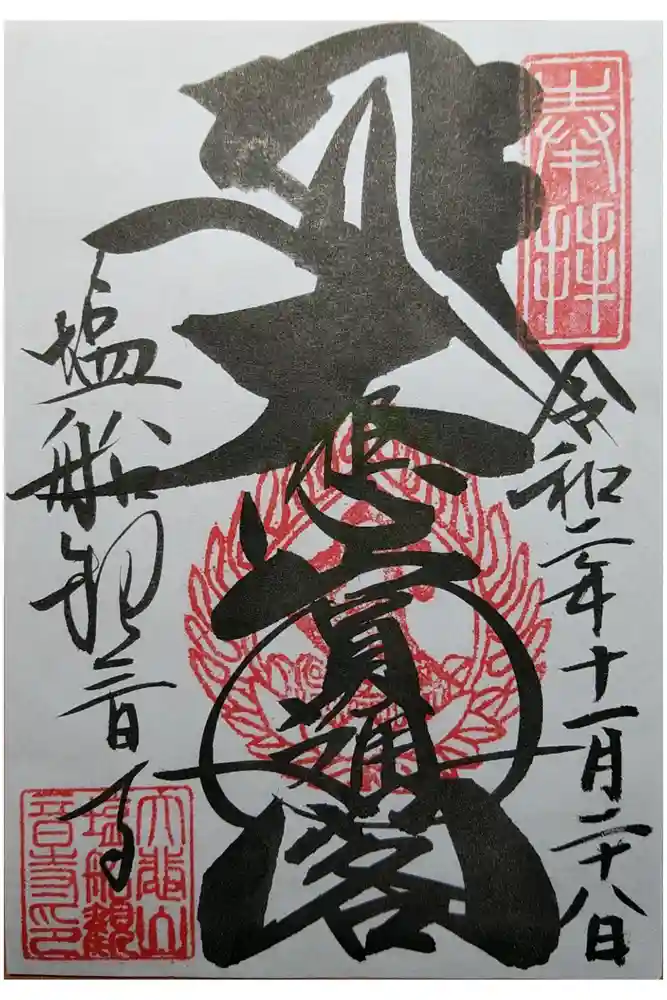 奉拝
令和二年十一月二十八日
大悲圓通閣
塩船観音寺
大悲山
塩船觀
音寺印